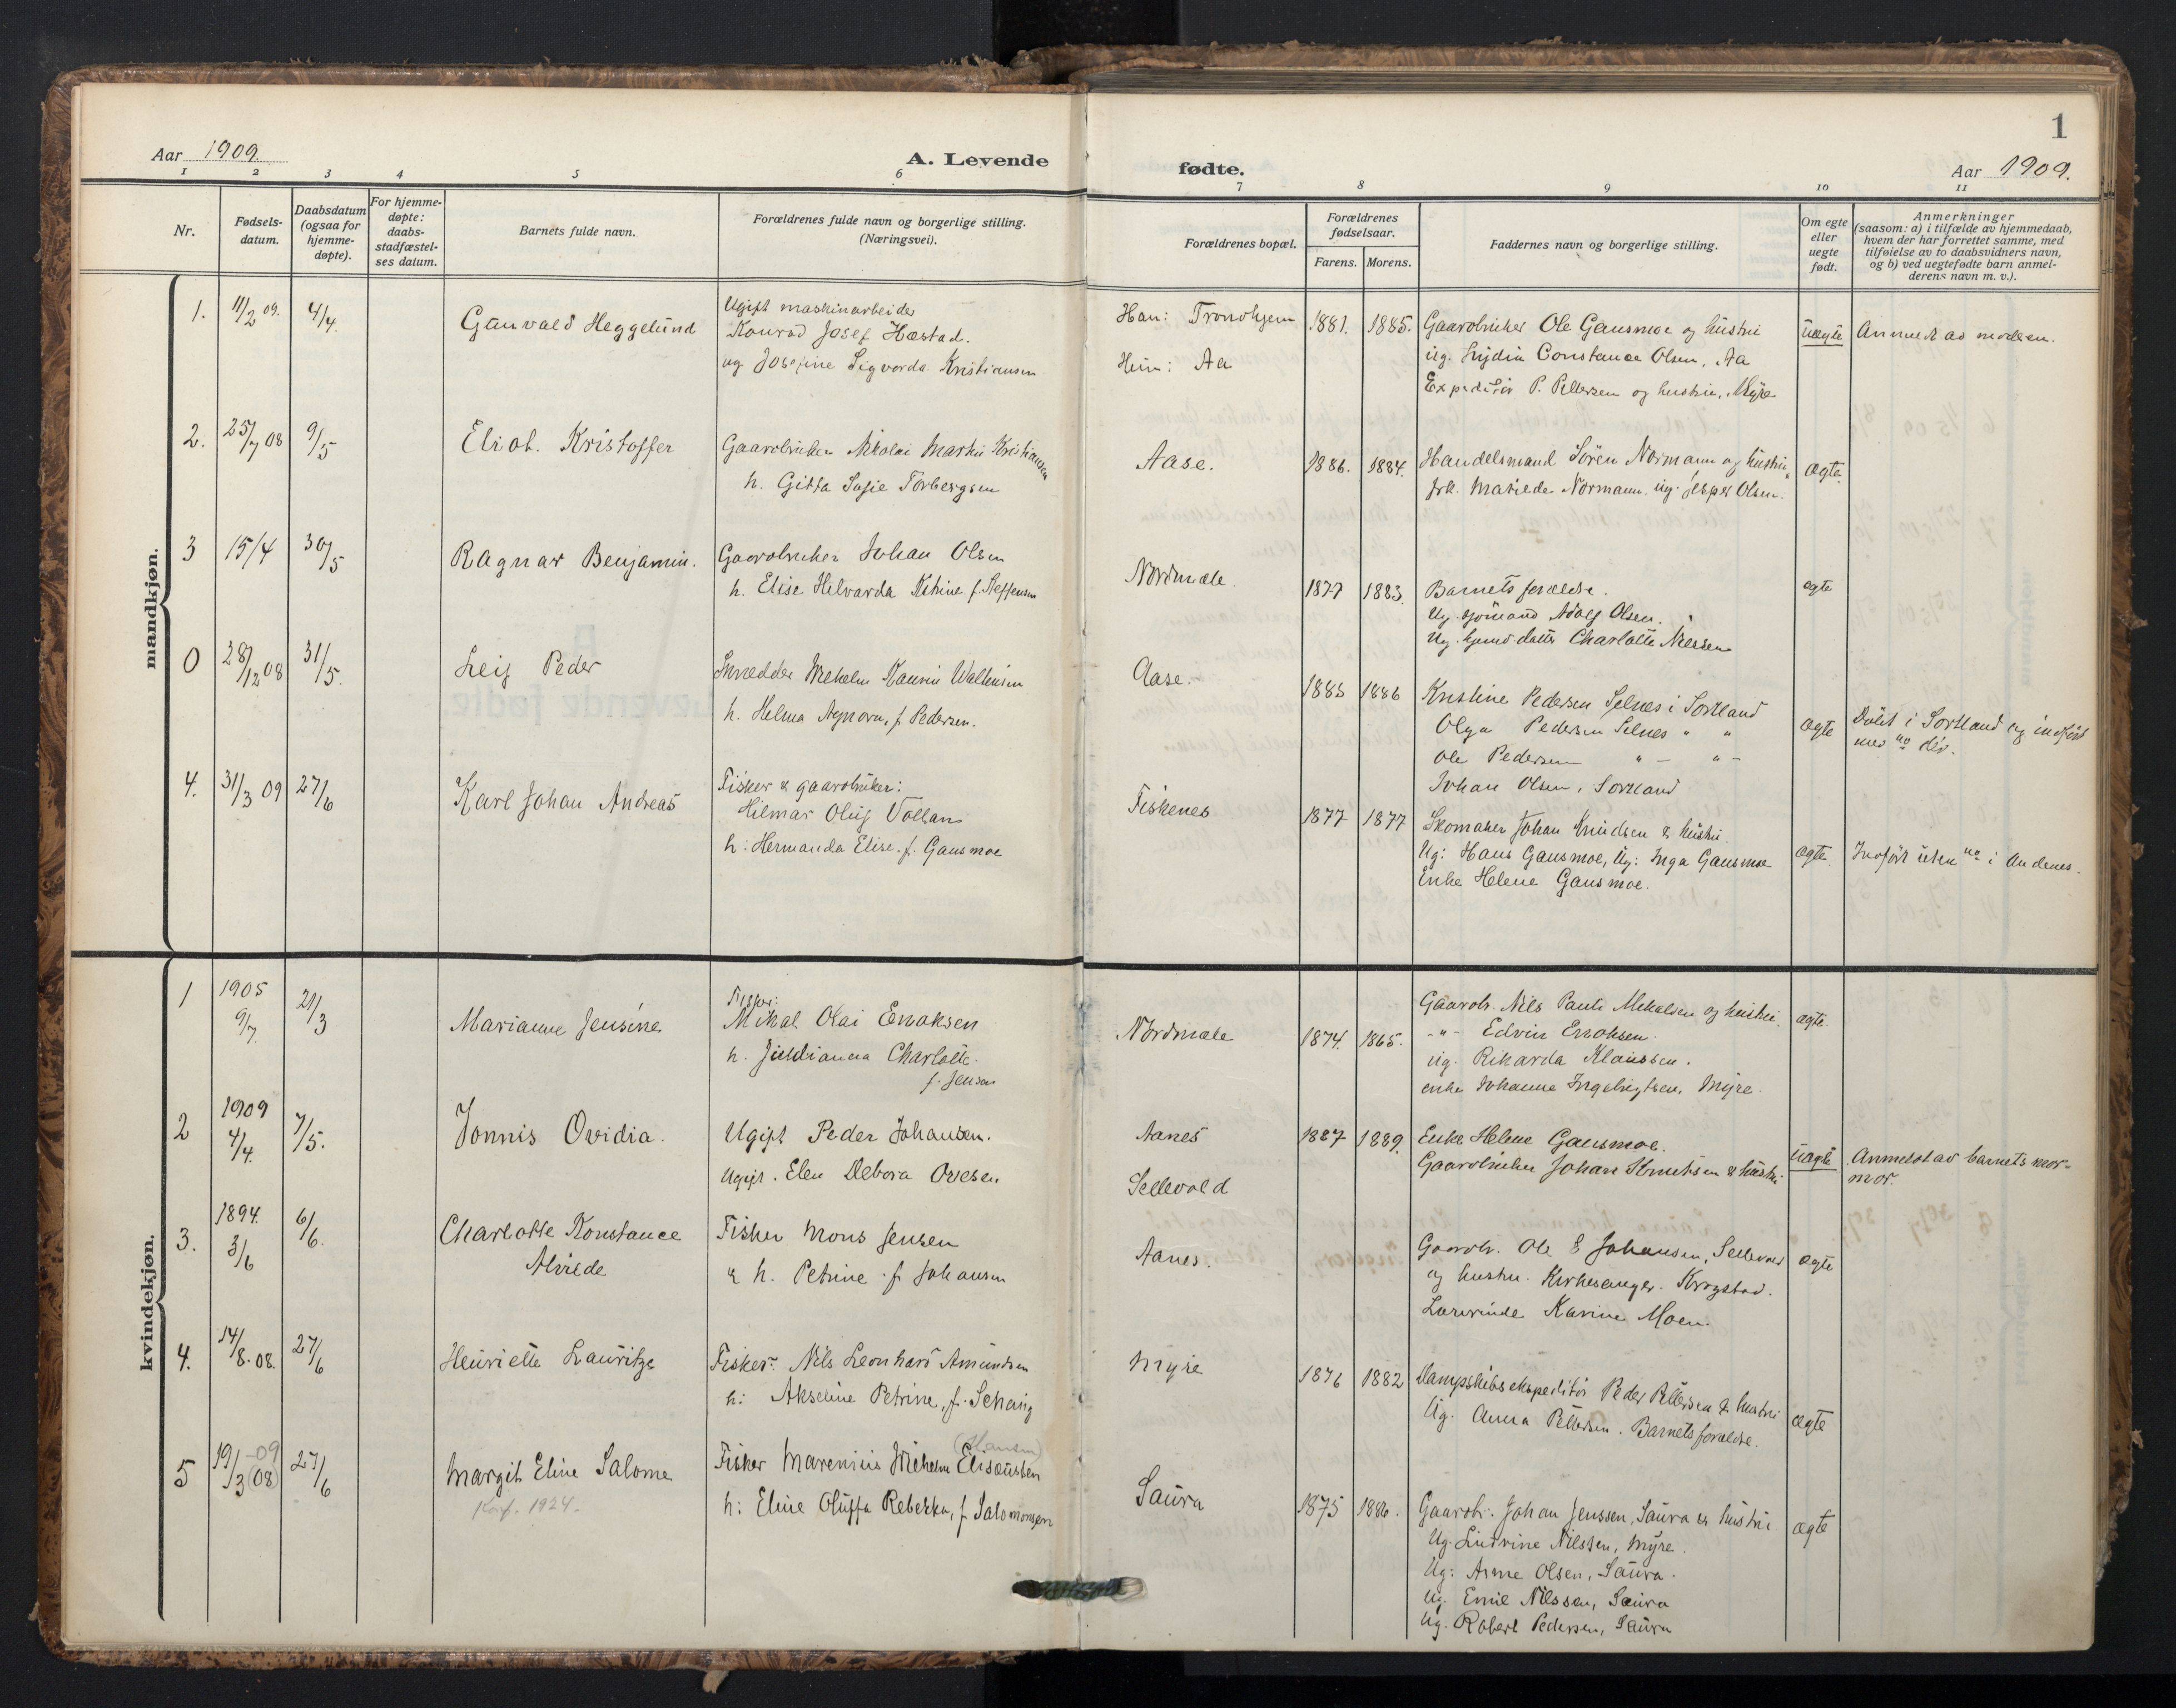 Aar 1909.
A. Levende
1 2 3 4 5 6
Nr.
Fødsels-
datum.
Daabsdatum
(ogsaa for
hjemme-
døpte).
For hjemme-
døpte:
daabs-
stadfæstel-
ses datum.
Barnets fulde navn.
Forældrenes fulde navn og borgerlige stilling.
(Næringsvei).
mandkjøn.
1. 11/2 09. 4/4. Gunvald Heggelund
Ugift maskinarbeider
Konrad Josef Hæstad.
ug Josefine Sigvarda Kristiansen
2. 25/7 08 9/5 Eliot. Kristoffer
Gaardbruker Nikolai Martin Kristiansen
h. Gitta Sofie Torbergsen
3 15/4 30/5 Ragnar Benjamin.
Gaardbruker Johan Olsen
h. Elise Helvarda f. Steffensen
0 28/12 08 31/5. Leif Peder
Wilhelm
h. Helma f. Pedersen.
4. 31/3 09 27/6 Karl Johan Andreas
Fisker & gaardbruker:
Hilmar Oluf Vollan
h: Hermanda Elise. f. Gausmoe
kvindekjøn.
1 1905 9/7. 21/3 Marianne Jensine
Fisker:
Mikal Olai Enoksen
h. Charlotte.
f. Jensen
2 1909 4/4. 7/5. Jonnis Ovidia.
Ugift Peder Johansen.
Ugift. Elen Debora Ovesen
3. 1894. 3/6 6/6. Charlotte Konstance
Alvilde
Fisker Mons Jensen
& h. Petrine f. Johansen
4. 14/8. 08. 27/6 Henriette Lauritze
Fisker: Nils Leonhard Amundsen
h: Akseline Petrine, f. Schanig
5 19/3 -09 (08) 27/6 Margit Eline Salome
Konf. 1924.
(Hansen)
Fisker Marenius Wilhelm Elisæussen
h: Eline Oluffa Rebekka, f Salomonsen
1
fødte.
Aar 1909.
7 8 9 10 11
Forældrenes bopæl.
Forældrenes
fødselsaar.
Farens. Morens.
Faddernes navn og borgerlige stilling.
Om egte
eller
uegte
født.
Anmerkninger
(saasom: a) i tilfælde av hjemmedaab,
hvem der har forrettet samme, med
tilføielse av to daabsvidners navn,
og b) ved uegtefødte barn anmel-
derens navn m. v.).
Han: Trondhjem 1881. 1885. Gaardbruker Ole Gausmoe og hustru uægte Anmeldt av moderen.
Hun: Aa
ug. Lydia Constance Olsen, Aa
Expeditør P. Pettersen og hustru, Myre
Aase. 1886. 1884. Handelsmand Sören Normann og hustru ægte.
frk. Matilde Normann. ug. Jesper Olsen.
Nordmæle. 1877 1883. Barnets forældre. ægte
Ug. sjömand Adolf Olsen.
Ug. gmd. datter Charlotte Nilssen
Aase. 1885 1886 Kristine Pedersen Selnes i Sortland
Olga Pedersen Selnes " " ægte Döbt i Sortland og indfört
med no der.
Ole Pedersen " - " -
Johan Olsen, Sortland
Fiskenes 1877 1877 Skomaker Johan Knudsen & hustru
Ug: Hans Gausmoe, Ug: Inga Gausmoe ægte Indfört uten no i Andenes.
Enke Helene Gausmoe.
Nordmæle 1874. 1865. Gaardb. Nils Pauli Mikalsen og hustru. ægte.
- " - Edvin Enoksen.
ug. Rikarda Klaussen.
enke Johanna Ingebrigtsen, Myre.
Aanes 1887 1889. Enke Helene Gausmoe. uægte Anmeldt av barnets mor-
mor.
Gaardbruker Johan Knutsen & hustru
Sellevold
Aanes. Gaardb. Ole E Johansen, Sellevold ægte
og hustru. Kirkesanger. Krogstad.
Lærerinde Karine Moen.
Myre 1876 1882 Dampskibsekspeditör Peder Pettersen & hustru
Ug. Anna Pettersen. Barnets forældre. ægte
Saura 1875 1886. Gaardb: Johan Jenssen, Saura & hustru ægte
Ug. Ludvine Nilssen, Myre.
Ug: Arne Olsen, Saura.
Ug. Emil Nilssen, Saura
Ug. Robert Pedersen, Saura